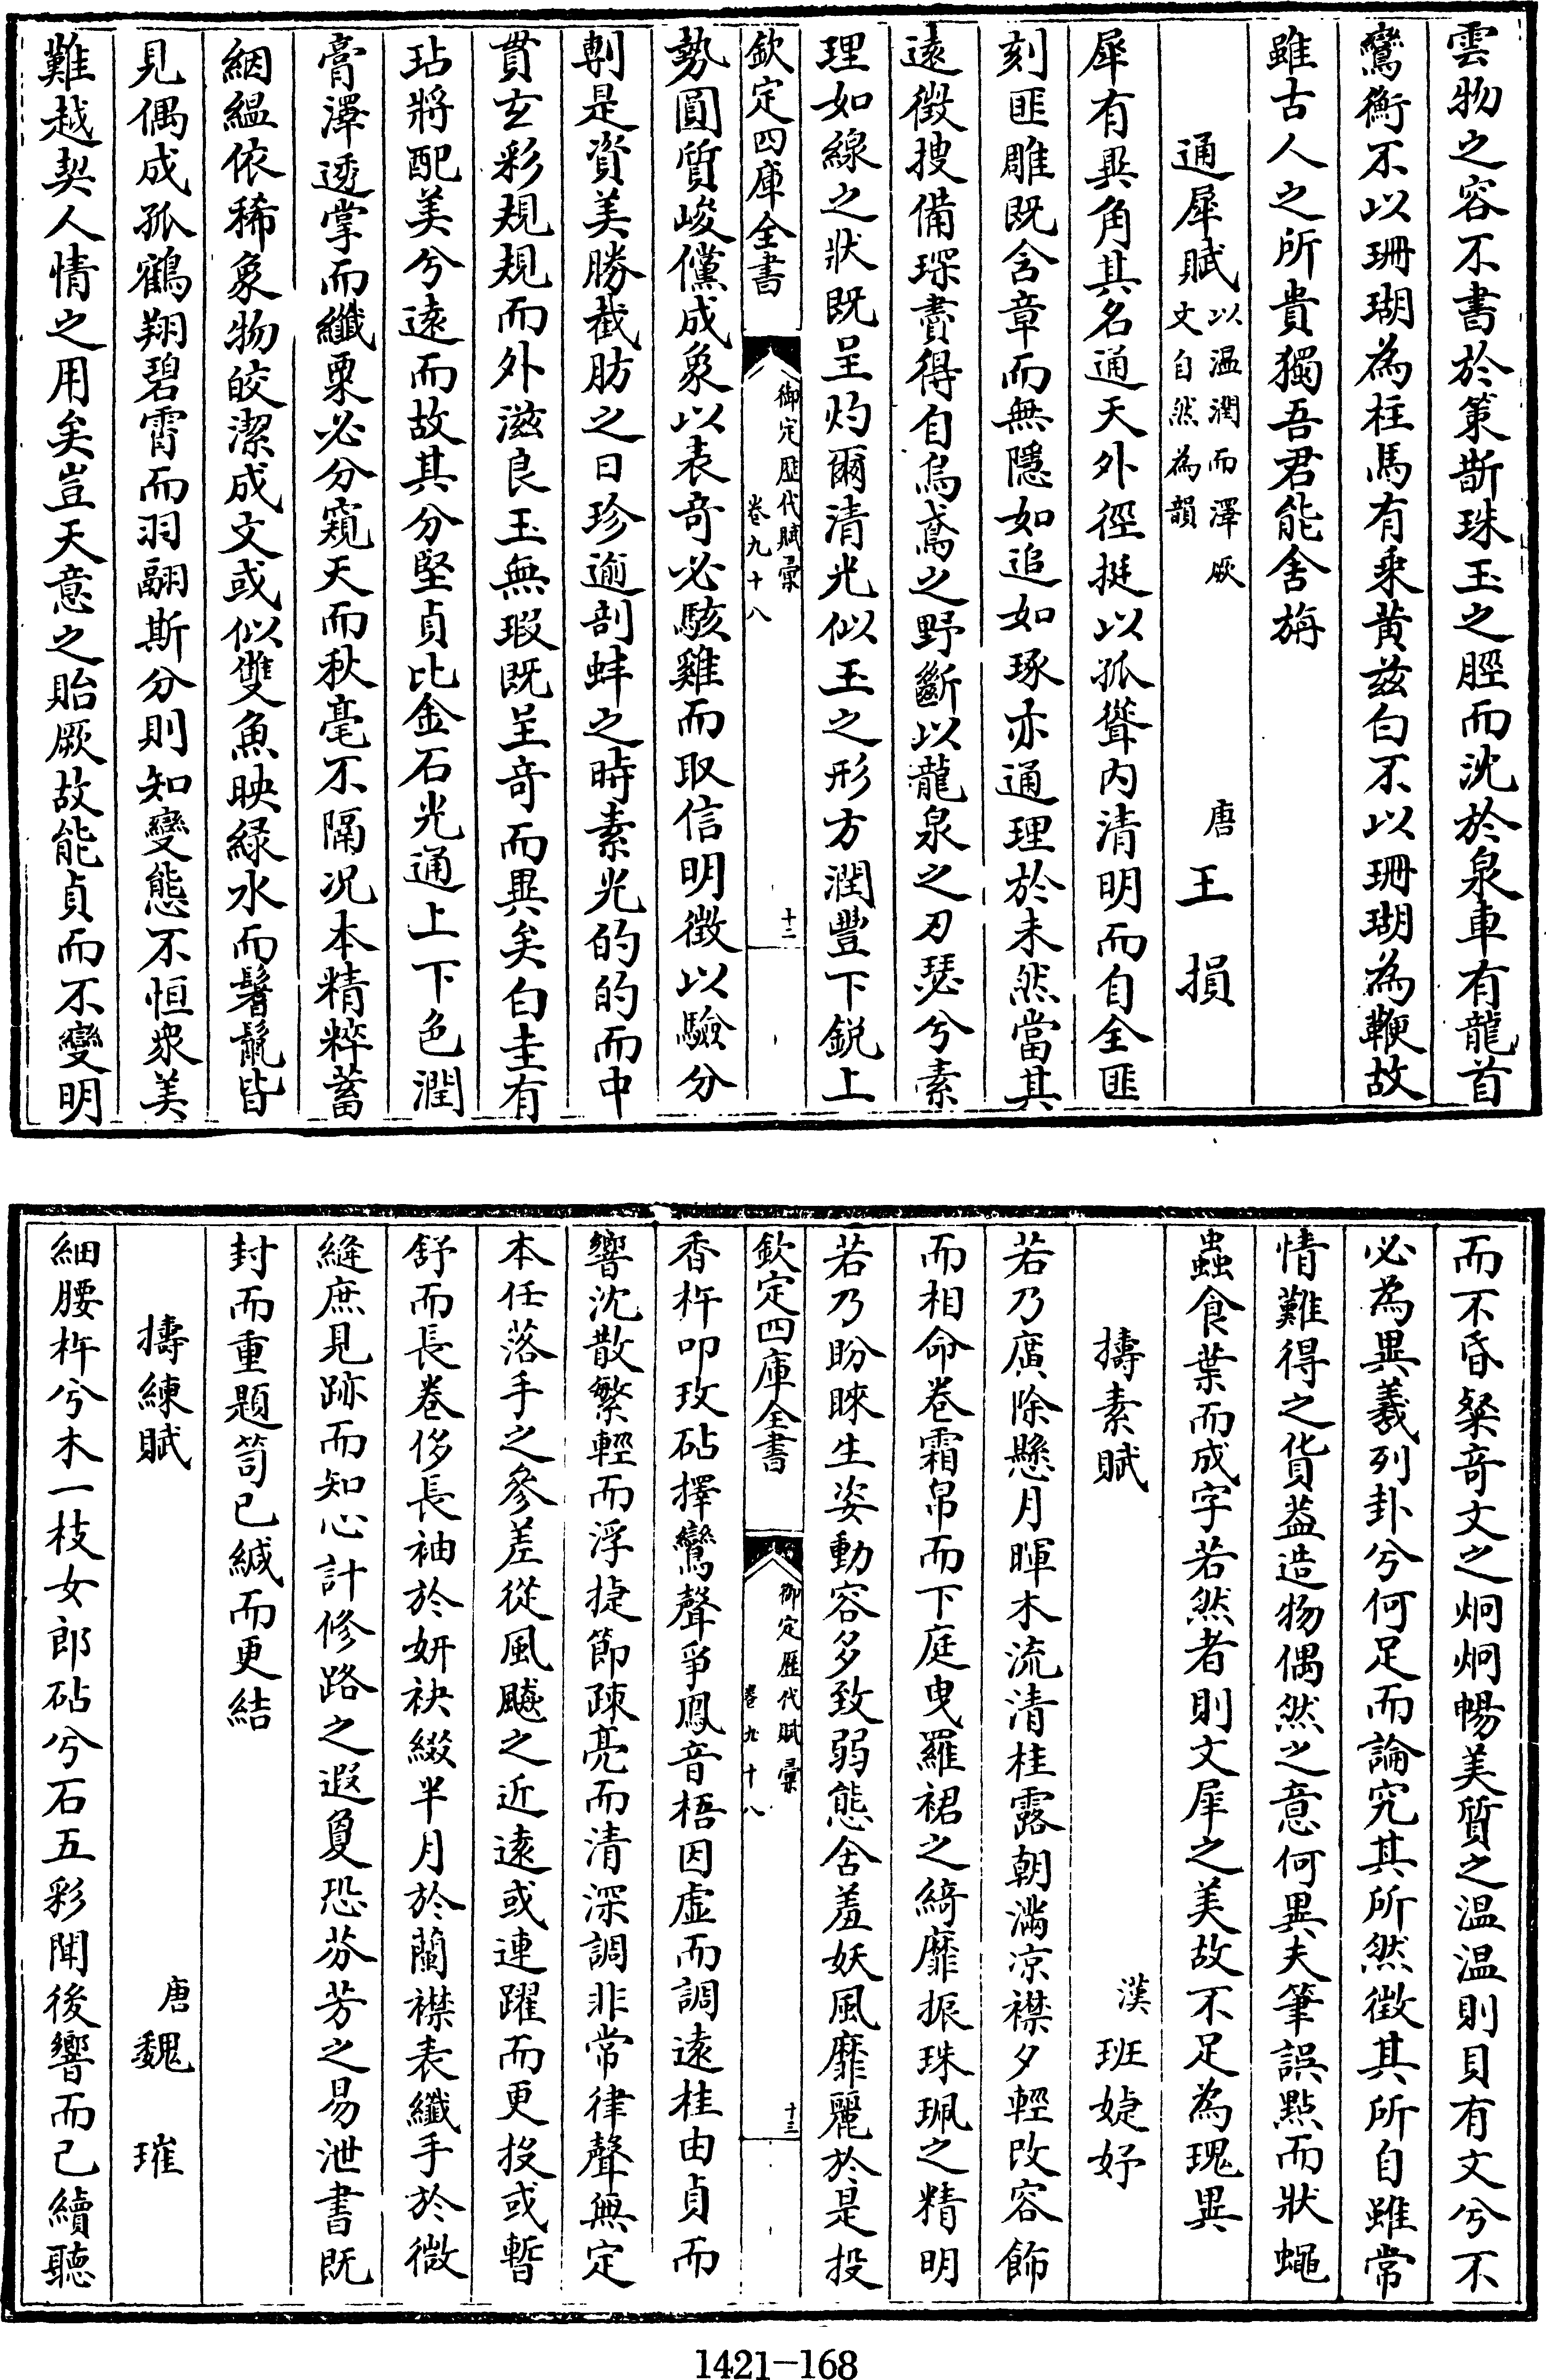 雲物之容不書於策斮珠玉之脛而沈於泉車有龍首
鸞衡不以珊瑚為柱馬有乘黄兹白不以珊瑚為鞭故
雖古人之所貴獨吾君能舍旃
通犀賦以温潤而澤厥文自然為韻 唐王損
犀有異角其名通天外徑挺以孤聳内清明而自全匪
刻匪雕既含章而無隱如追如琢亦通理於未然當其
遠徵搜備琛賮得自烏鳶之野斷以龍泉之刃瑟兮素
理如線之狀既呈灼爾清光似玉之形方潤豐下鋭上
欽定四庫全書 御定歴代賦彚 卷九十八 十二
勢圓質峻儻成象以表奇必駭雞而取信明徵以驗分
剸是資美勝截肪之日珍逾剖蚌之時素光的的而中
貫玄彩規規而外滋良玉無瑕既呈奇而異矣白圭有
玷將配美兮遠而故其分堅貞比金石光通上下色潤
膏澤透掌而纖粟必分窺天而秋毫不隔况本精粹蓄
絪緼依稀象物皎潔成文或似雙魚映緑水而鬐鬛皆
見偶成孤鶴翔碧霄而羽翮斯分則知變態不恒衆美
難越契人情之用矣豈天意之貽厥故能貞而不變明
而不昏粲奇文之炯炯暢美質之温温則貝有文兮不
必為異羲列卦兮何足而論究其所然徴其所自雖常
情難得之貨葢造物偶然之意何異夫筆誤點而狀蠅
蟲食葉而成字若然者則文犀之美故不足為瑰異
擣素賦 漢班婕妤
若乃廣除懸月暉木流清桂露朝滿凉襟夕輕改容飾
而相命卷霜帛而下庭曵羅裙之綺靡振珠珮之精明
若乃盼睞生姿動容多致弱態含羞妖風靡麗於是投
欽定四庫全書 御定歴代賦彚 卷九十八 十三
香杵叩玟砧擇鸞聲爭鳳音梧因虚而調遠桂由貞而
響沈散繁輕而浮捷節疎亮而清深調非常律聲無定
本任落手之參差從風飈之近遠或連躍而更投或暫
舒而長巻侈長袖於妍袂綴半月於蘭襟表纖手於微
縫庶見跡而知心計修路之遐敻恐芬芳之易泄書既
封而重題笥已緘而更結
擣練賦 唐魏璀
細腰杵兮木一枝女郎砧兮石五彩聞後響而已續聽
1421-168